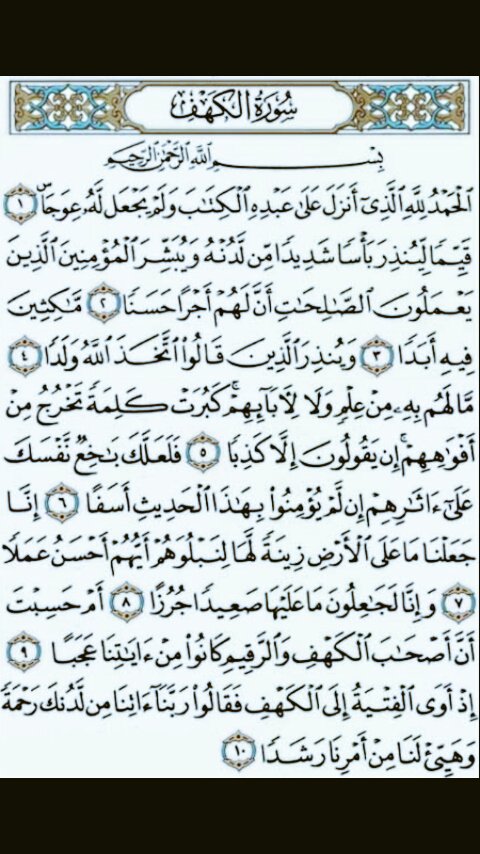 سُورَةُ الكَهْفِ
بِسْمِ اللَّهِ الرَّحْمَٰنِ الرَّحِيمِ
الْحَمْدُ لِلَّهِ الَّذِي أَنزَلَ عَلَىٰ عَبْدِهِ الْكِتَابَ وَلَمْ يَجْعَل لَّهُ عِوَجًاۜ ١
قَيِّمًا لِّيُنذِرَ بَأْسًا شَدِيدًا مِّن لَّدُنْهُ وَيُبَشِّرَ الْمُؤْمِنِينَ الَّذِينَ
يَعْمَلُونَ الصَّالِحَاتِ أَنَّ لَهُمْ أَجْرًا حَسَنًا ٢ مَّاكِثِينَ
فِيهِ أَبَدًا ٣ وَيُنذِرَ الَّذِينَ قَالُوا اتَّخَذَ اللَّهُ وَلَدًا ٤
مَّا لَهُم بِهِ مِنْ عِلْمٍ وَلَا لِآبَائِهِمْ ۚ كَبُرَتْ كَلِمَةً تَخْرُجُ مِنْ
أَفْوَاهِهِمْ ۚ إِن يَقُولُونَ إِلَّا كَذِبًا ٥ فَلَعَلَّكَ بَاخِعٌ نَّفْسَكَ
عَلَىٰ ءَاثَارِهِمْ إِن لَّمْ يُؤْمِنُوا بِهَٰذَا الْحَدِيثِ أَسَفًا ٦ إِنَّا
جَعَلْنَا مَا عَلَى الْأَرْضِ زِينَةً لَّهَا لِنَبْلُوَهُمْ أَيُّهُمْ أَحْسَنُ عَمَلًا
٧ وَإِنَّا لَجَاعِلُونَ مَا عَلَيْهَا صَعِيدًا جُرُزًا ٨ أَمْ حَسِبْتَ
أَنَّ أَصْحَابَ الْكَهْفِ وَالرَّقِيمِ كَانُوا مِنْ ءَايَاتِنَا عَجَبًا ٩
إِذْ أَوَى الْفِتْيَةُ إِلَى الْكَهْفِ فَقَالُوا رَبَّنَا ءَاتِنَا مِن لَّدُنكَ رَحْمَةً
وَهَيِّئْ لَنَا مِنْ أَمْرِنَا رَشَدًا ١٠